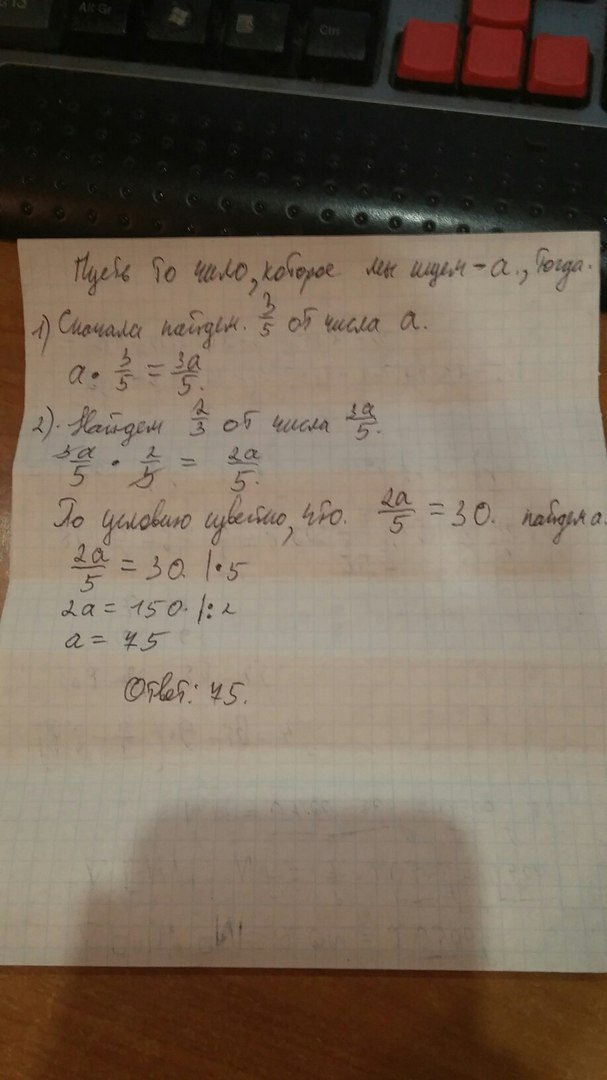 Alt Gr
Ctrl
Пусть то число, которое мы ищем - a., тогда.
1) Сначала найдем. 3/5 от числа a.
a · 3/5 = 3a/5.
2). Найдем 2/3 от числа 3a/5.
3a/5 · 2/3 = 2a/5.
По условию известно, что. 2a/5 = 30. найдем a.
2a/5 = 30. |·5
2a = 150. |:2
a = 75
Ответ: 75.